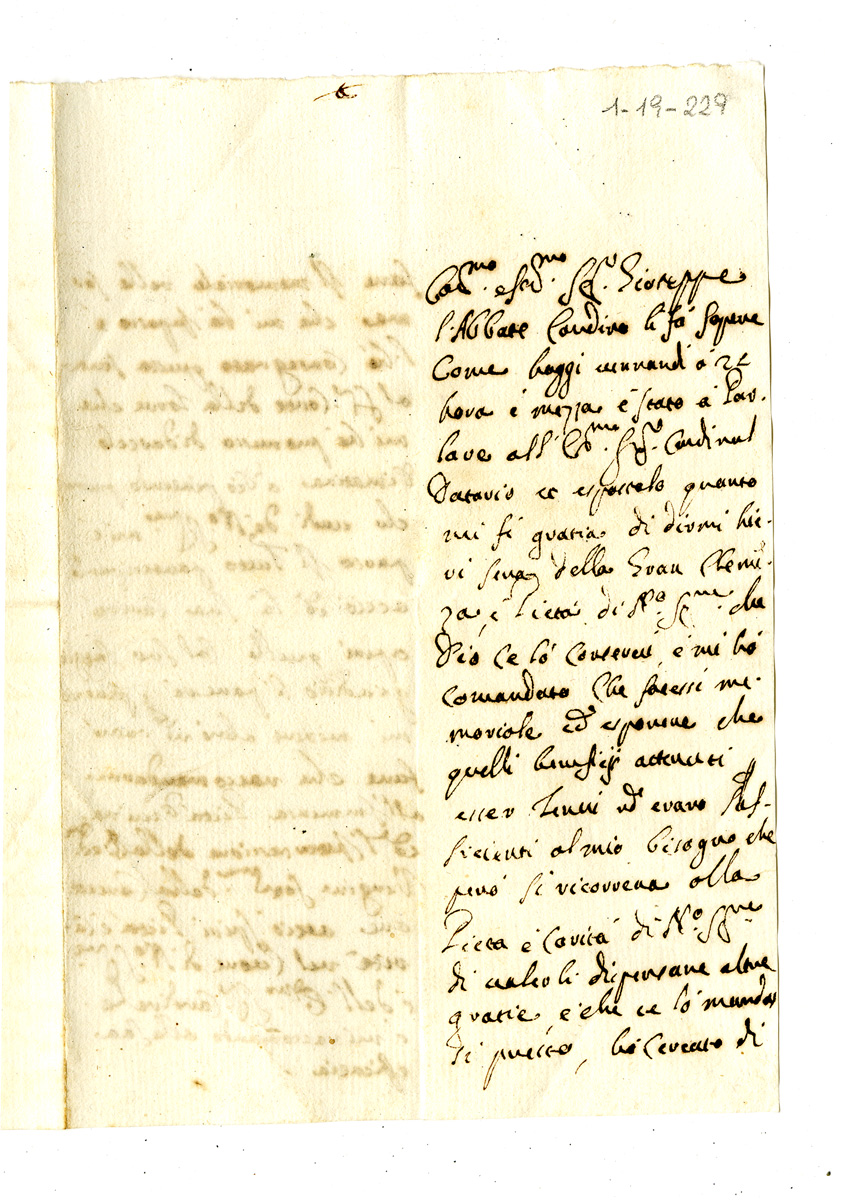 1-19-229
Car.mo e Sti.mo Sig.r Gioseppe
l'Abbate Condino li fà sapere
Come hoggi à 22
hora è mezza è stato à Par-
lare all' Em.mo Sig.r Cardinal
Datario et espostolo quanto
mi fè gratia di dirmi hie-
ri sera della Gran Cleme-
za, è Pietà di N.o Sig.re che
Dio ce lò conservi, è mi hà
comandato che facessi me-
moriale ed esporere che
quelli benefitij ottenuti
esser tenui nè erano suf-
ficienti al mio bisogno che
però si ricorreva alla
Pietà è Carità di N.o Sig.re
di volerli dispensare altre
gratie, è che ce lò mandas
si presto, hò Cercato di